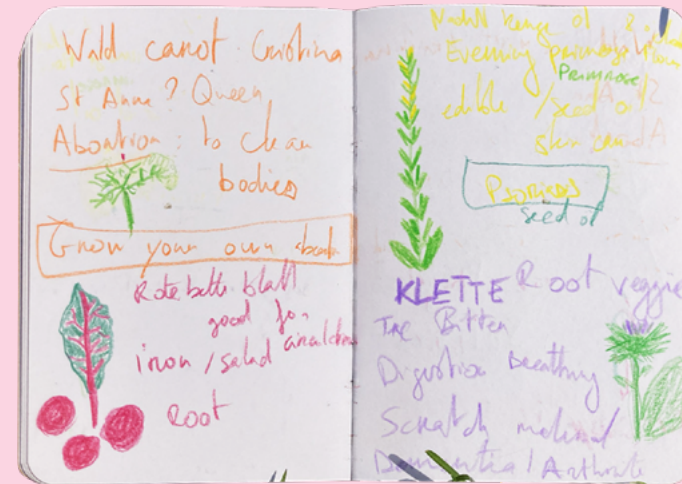 Wild carrot Cristina
St Anne? Queen
Abortion: to clean
bodies
Grow your own
Rote bete blatt
good for
iron / salad circulation
Root
Evening primrose
Primrose
edible / seed oil
skin
Psoriasis
seed oil
KLETTE Root veggie
Tae Bitter
Digestion Breathing
Scratch material
Dementia / Arthrite